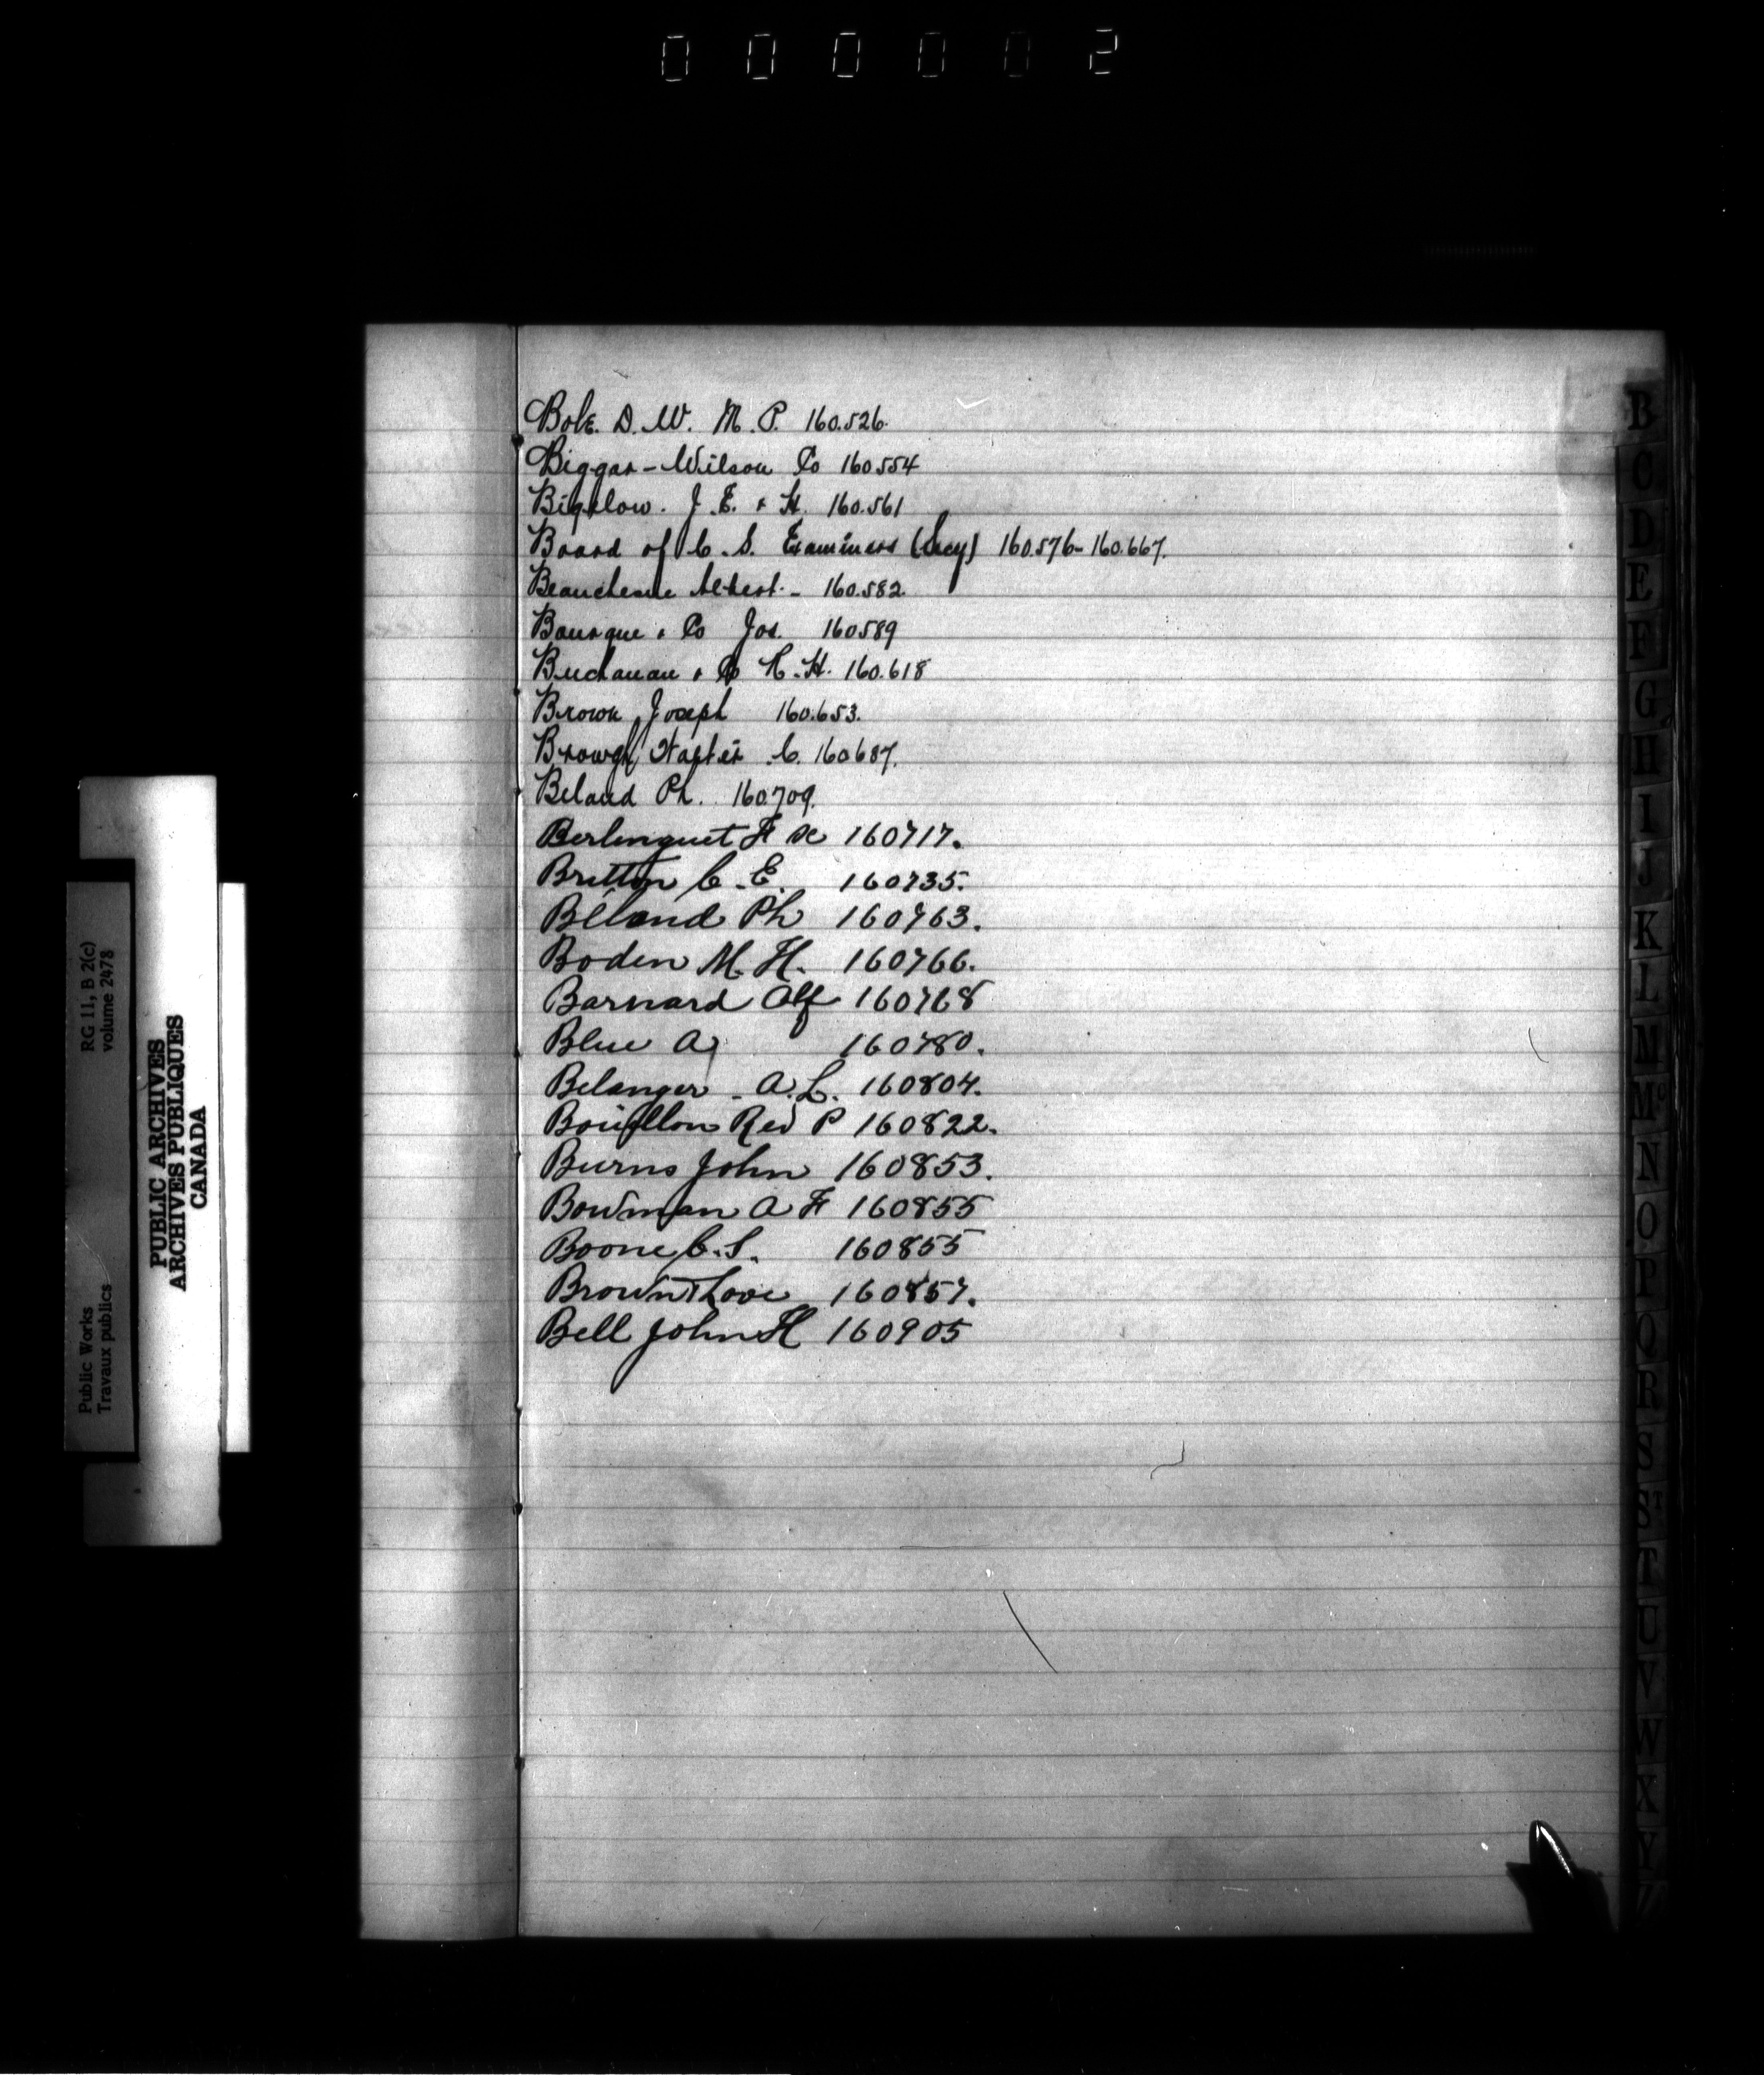 000002
Bole. D. W. M. P. 160.526.
Biggar - Wilson Co 160554
Bigelow. J. E. & H. 160.561
Board of C. S. Examiners (Secy) 160.576 - 160.667.
Beauchesne Albert. - 160.582.
Bourque & Co Jos. 160589
Buchanan & Co R. H. 160.618
Brown Joseph 160.653.
Brough Napier C. 160687.
Beland Ph. 160.709.
Berlinguet F X 160717.
Britton C. E. 160735.
Béland Ph 160763.
Boden M. H. 160766.
Barnard Alf 160768
Blue A. 160780.
Belanger - A. L. 160804.
Bouillon Rev P 160822.
Burns John 160853.
Bowman A F 160855
Boone C. S. 160855
Brown & Love 160857.
Bell John H 160905
B
C
D
E
F
G
H
I
J
K
L
M
Mc
N
O
P
Q
R
S
ST
T
U
V
W
X
Y
RG 11, B 2(c)
volume 2478
Public Works
Travaux publics
PUBLIC ARCHIVES
ARCHIVES PUBLIQUES
CANADA